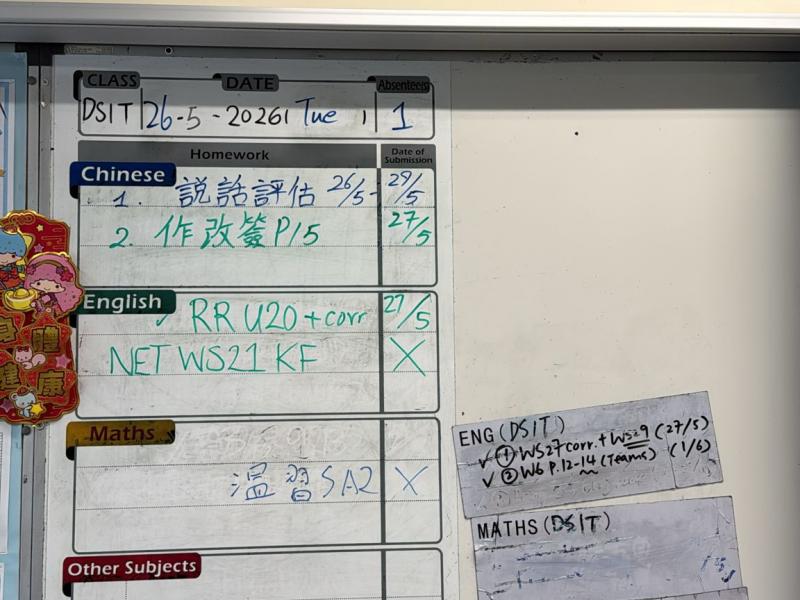 CLASS DATE Absentee(s)
DSIT 26-5-2026 Tue 1
Homework Date of Submission
Chinese
1. 説話評估 26/5 - 29/5
2. 作改簽 P15 27/5
English
✓ RR U20 + corr 27/5
NET WS21 KF X
Maths
溫習 SA2 X
Other Subjects
ENG (DSIT)
✓ ① WS27 corr. + WS29 (27/5)
✓ ② W6 P.12-14 (Teams) (1/6)
MATHS (DSIT)
健康